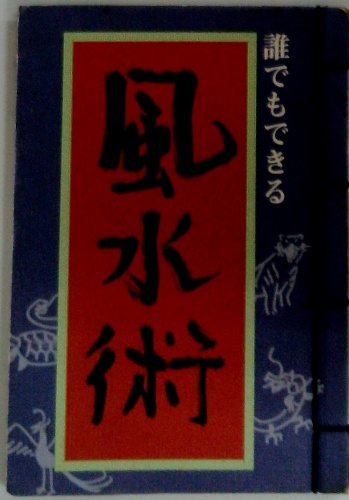 誰でもできる
風水術